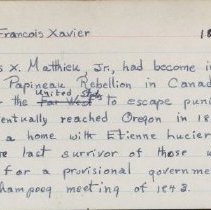 Francois Xavier 18
s X. Matthieu, Jr., had become in
Papineau Rebellion in Canad
United States
r the Far West to escape puni
entually reached Oregon in 18
a home with Etienne Lucier
re last survivor of those w
for a provisional governme
hampoeg meeting of 1843.